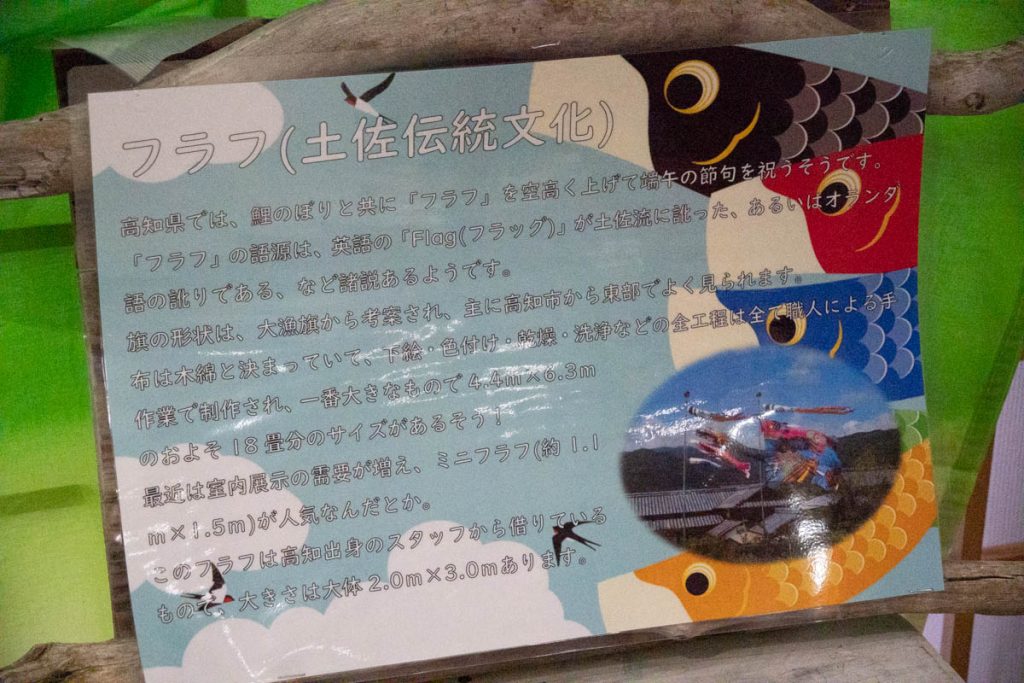 フラフ(土佐伝統文化)
高知県では、鯉のぼりと共に「フラフ」を空高く上げて端午の節句を祝うそうです。
「フラフ」の語源は、英語の「Flag(フラッグ)」が土佐流に訛った、あるいはオランダ
語の訛りである、など諸説あるようです。
旗の形状は、大漁旗から考案され、主に高知市から東部でよく見られます。
布は木綿と決まっていて、下絵・色付け・乾燥・洗浄などの全工程は全て職人による手
作業で制作され、一番大きなもので4.4m×6.3m
のおよそ18畳分のサイズがあるそう!
最近は室内展示の需要が増え、ミニフラフ(約1.1
m×1.5m)が人気なんだとか。
このフラフは高知出身のスタッフから借りている
もので、大きさは大体2.0m×3.0mあります。